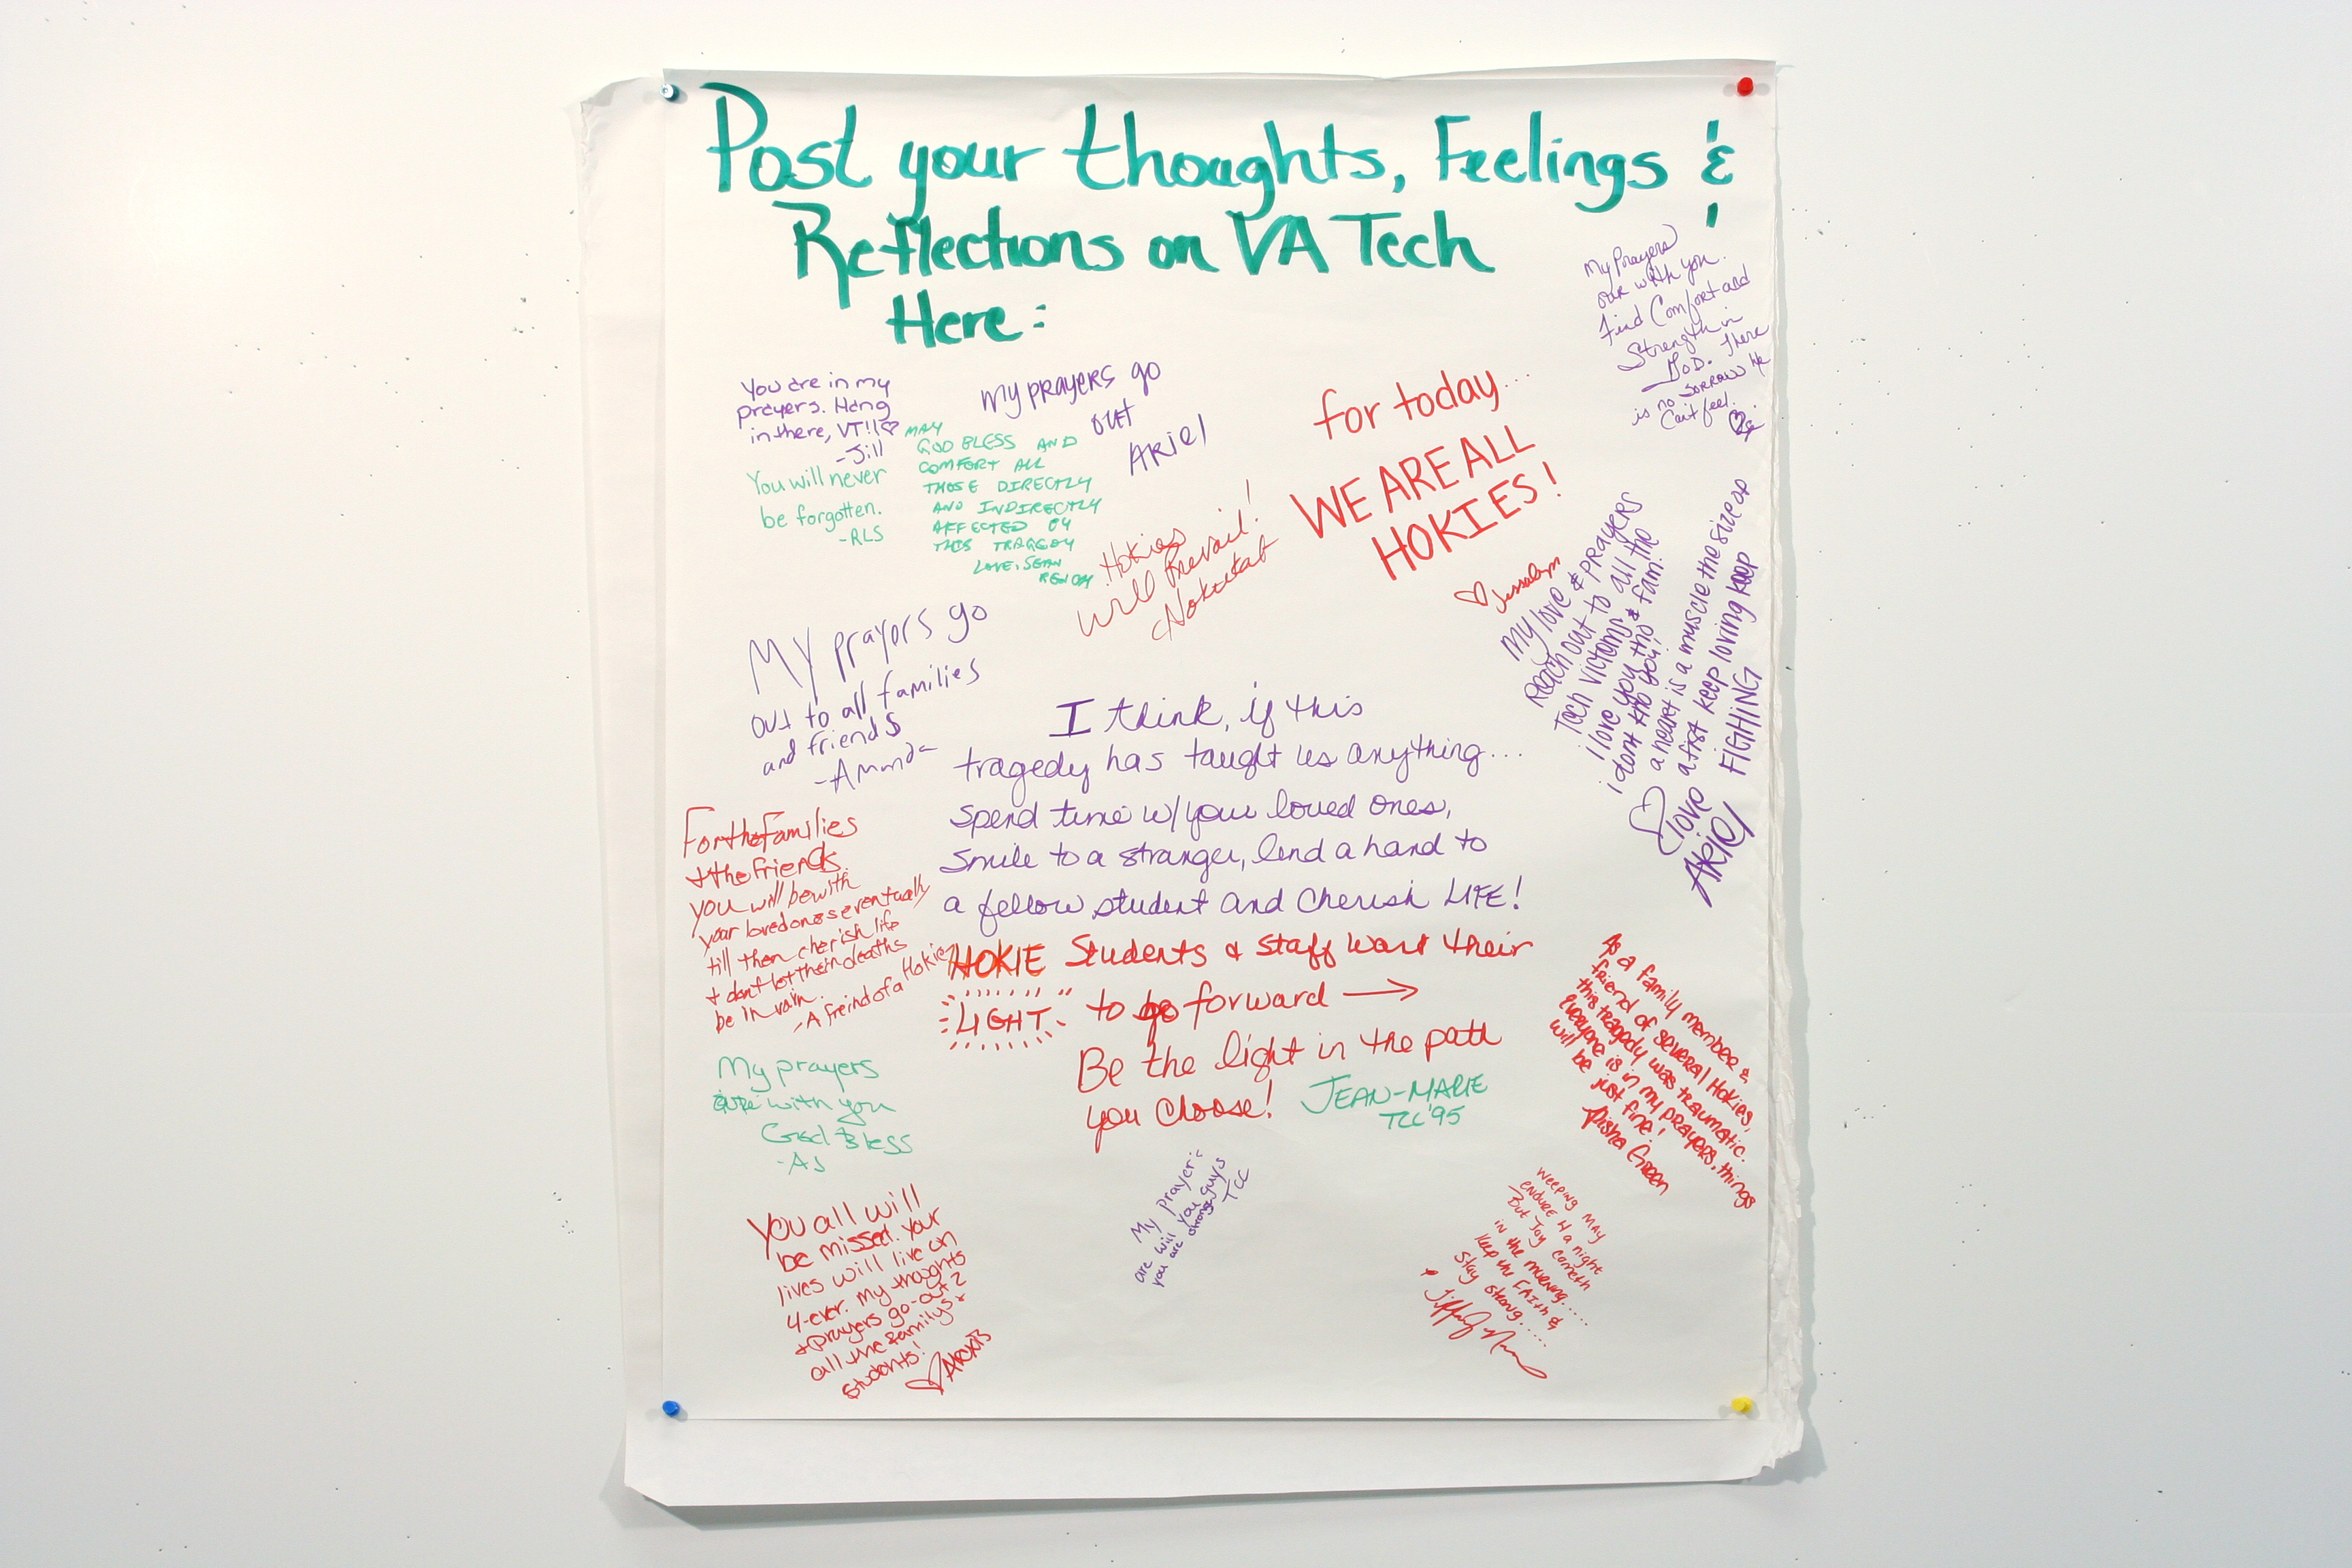 Post your thoughts, Feelings &
Reflections on VA Tech
Here:
My Prayers
our with you.
Find Comfort and
Strength in
GOD. There
is no sorrow He
Can't feel.
You are in my
prayers. Hang
in there, VT!! ♡
-Jill
My prayers go
out
Ariel
for today...
WE ARE ALL
HOKIES!
♡ Jessalyn
You will never
be forgotten.
-RLS
MAY
GOD BLESS AND
COMFORT ALL
THOSE DIRECTLY
AND INDIRECTLY
AFFECTED BY
THIS TRAGEDY
LOVE, SEAN
Hokies
will Prevail!
My love & prayers
Reach out to all the
Tech victims & fam.
i love you tho
i dont kno you!
a heart is a muscle the size of
a fist keep loving keep
FIGHTING
♡ love
Ariel
My prayers go
out to all families
and friends
-Amanda
I think, if this
tragedy has taught us anything...
spend time w/your loved ones,
smile to a stranger, lend a hand to
a fellow student and cherish LIFE!
For the families
+ the friends.
you will be with
your loved ones eventually
till then cherish life
+ don't let their deaths
be in vain.
-A freind of a Hokie
HOKIE Students & staff want their
LIGHT to go forward →
Be the light in the path
you choose!
JEAN-MARIE
TCC '95
As a family member &
friend of several Hokies,
this tragedy was traumatic.
Everyone is in my prayers, things
will be just fine!
Alisha Green
My prayers
are with you
God Bless
-AJ
You all will
be missed. Your
lives will live on
4-ever. My thoughts
+ prayers go-out 2
all the familys +
students!
♡ Alexis B
My prayer:
are will you guys
you are stronger
TCC
Weeping may
endure 4 a night
But Joy cometh
in the morning....
Keep the Faith &
Stay strong......